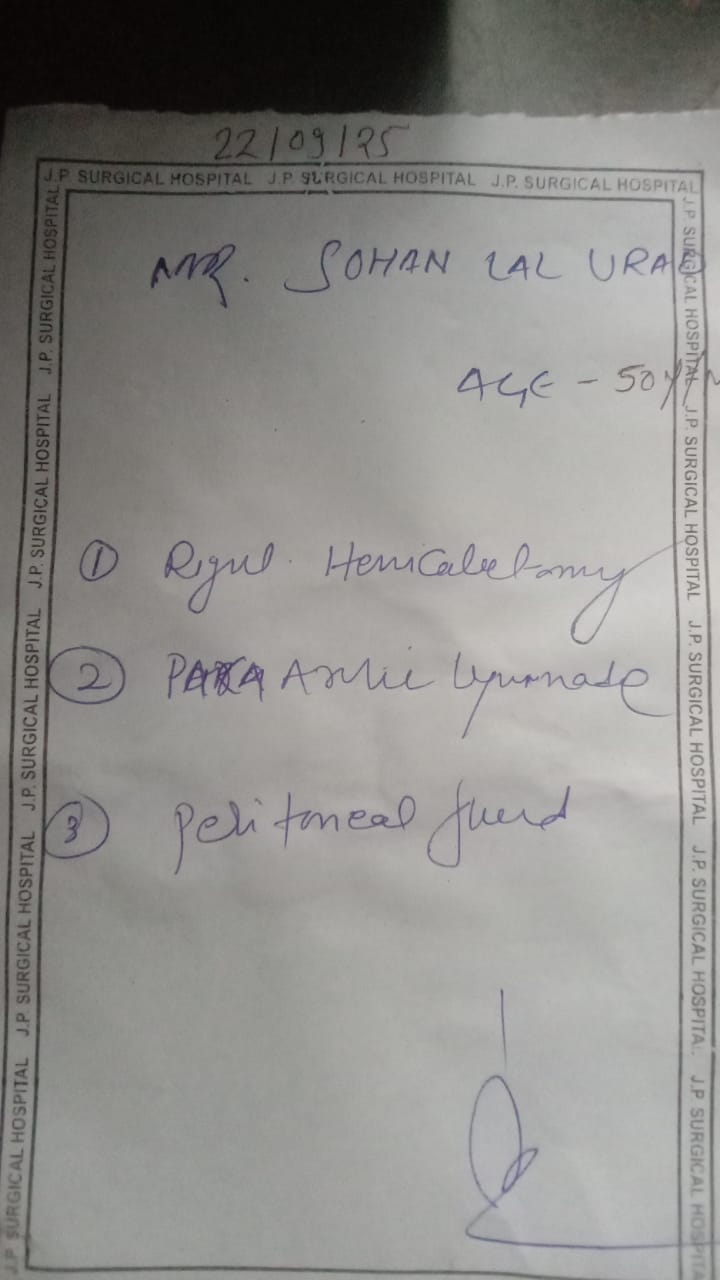 22/09/25
J.P. SURGICAL HOSPITAL J.P. SURGICAL HOSPITAL J.P. SURGICAL HOSPITAL
MR. SOHAN LAL
AGE - 50
① Hemicolectomy
② PARA Aortic lymnode
③ Peritoneal fluid
J.P. SURGICAL HOSPITAL J.P. SURGICAL HOSPITAL J.P. SURGICAL HOSPITAL J.P. SURGICAL HOSPITAL J.P. SURGICAL HOSPITAL J.P. SURGICAL HOSPITAL
J.P. SURGICAL HOSPITAL J.P. SURGICAL HOSPITAL J.P. SURGICAL HOSPITAL J.P. SURGICAL HOSPITAL J.P SURGICAL HOSPITA